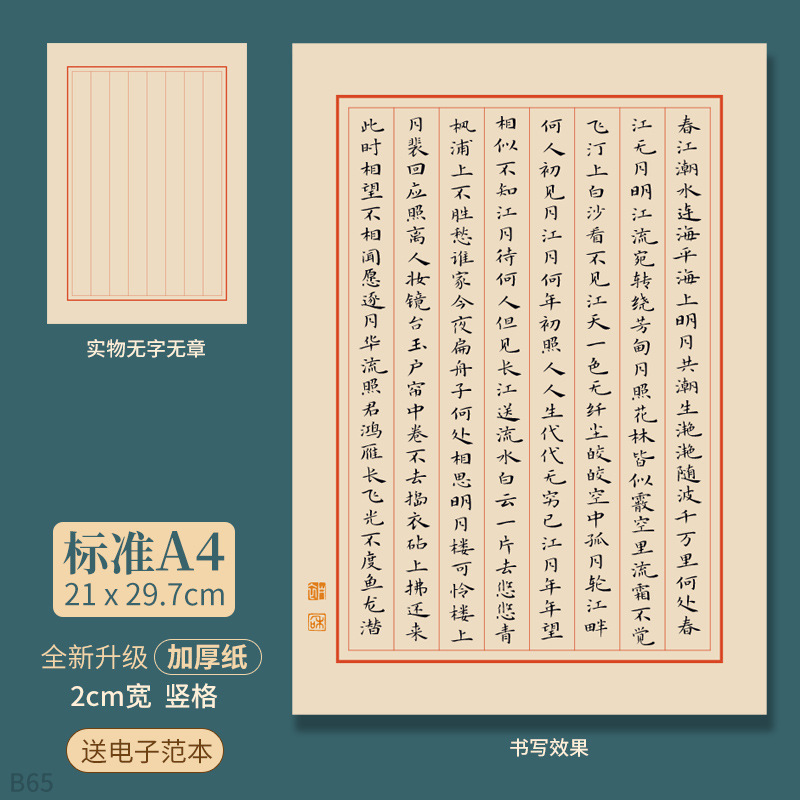 春江潮水连海平海上明月共潮生滟滟随波千万里何处春
江无月明江流宛转绕芳甸月照花林皆似霰空里流霜不觉
飞汀上白沙看不见江天一色无纤尘皎皎空中孤月轮江畔
何人初见月江月何年初照人人生代代无穷已江月年年望
相似不知江月待何人但见长江送流水白云一片去悠悠青
枫浦上不胜愁谁家今夜扁舟子何处相思明月楼可怜楼上
月裴回应照离人妆镜台玉户帘中卷不去捣衣砧上拂还来
此时相望不相闻愿逐月华流照君鸿雁长飞光不度鱼龙潜
实物无字无章
标准A4
21 x 29.7cm
全新升级 加厚纸
2cm宽 竖格
送电子范本
书写效果
B65